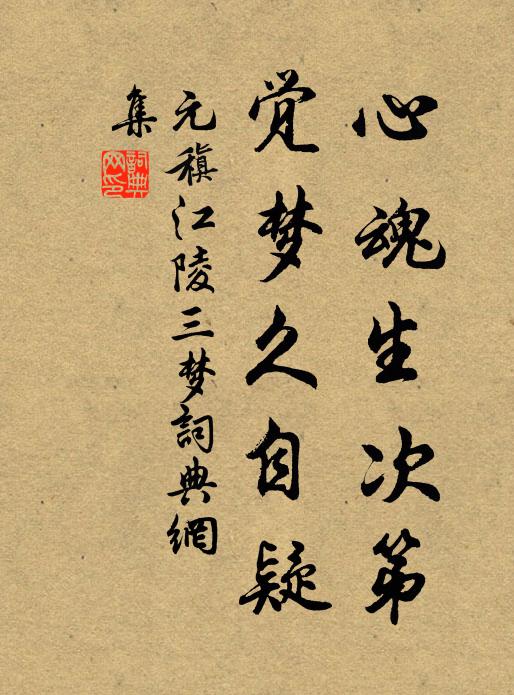 心魂生次第
觉梦久自疑
元稹江陵三梦詞典網
集
詞典
网印